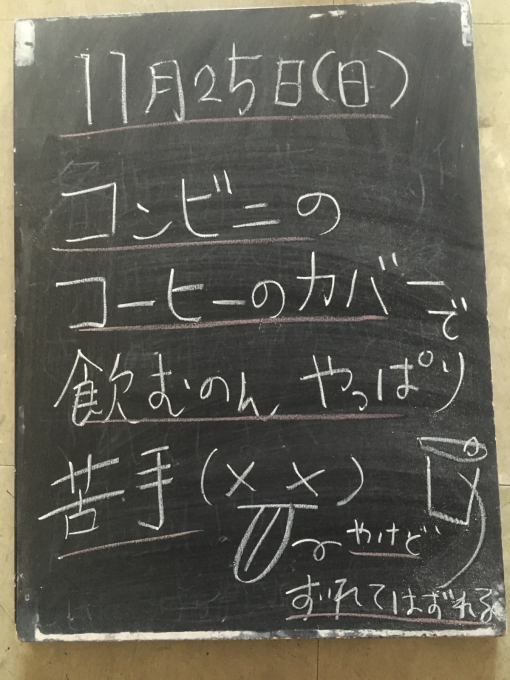 11月25日(日)
コンビニの
コーヒーのカバーで
飲むのん やっぱり
苦手(××)
〜やけど
ずれてはずれる